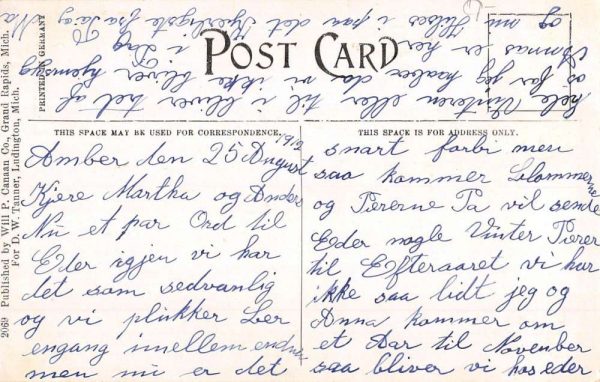 POST CARD
PRINTED IN GERMANY
2069 Published by Will P. Canaan Co., Grand Rapids, Mich.
For D. W. Tanner, Ludington, Mich.
THIS SPACE MAY BE USED FOR CORRESPONDENCE.
Amber den 25 August 1912
Kjere Martha og Anders
Nu et par Ord til
Eder igjen vi har
det som sedvanlig
og vi plukker Ber
engang imellem endnu
men nu er det
THIS SPACE IS FOR ADDRESS ONLY.
snart forbi men
saa kommer Blommerne
og Pærerne Pa vil sende
Eder nogle Vinter Pærer
til Efteraaret vi har
ikke saa lidt jeg og
Anna kommer om
et Aar til November
saa bliver vi hos eder
hele Vinteren eller til i bliver tret af
os for jeg haaber da vi ikke bliver hjemsyg
er her i Dag
og nu Hilses i paa det Hjerligste fra Pa og Ma